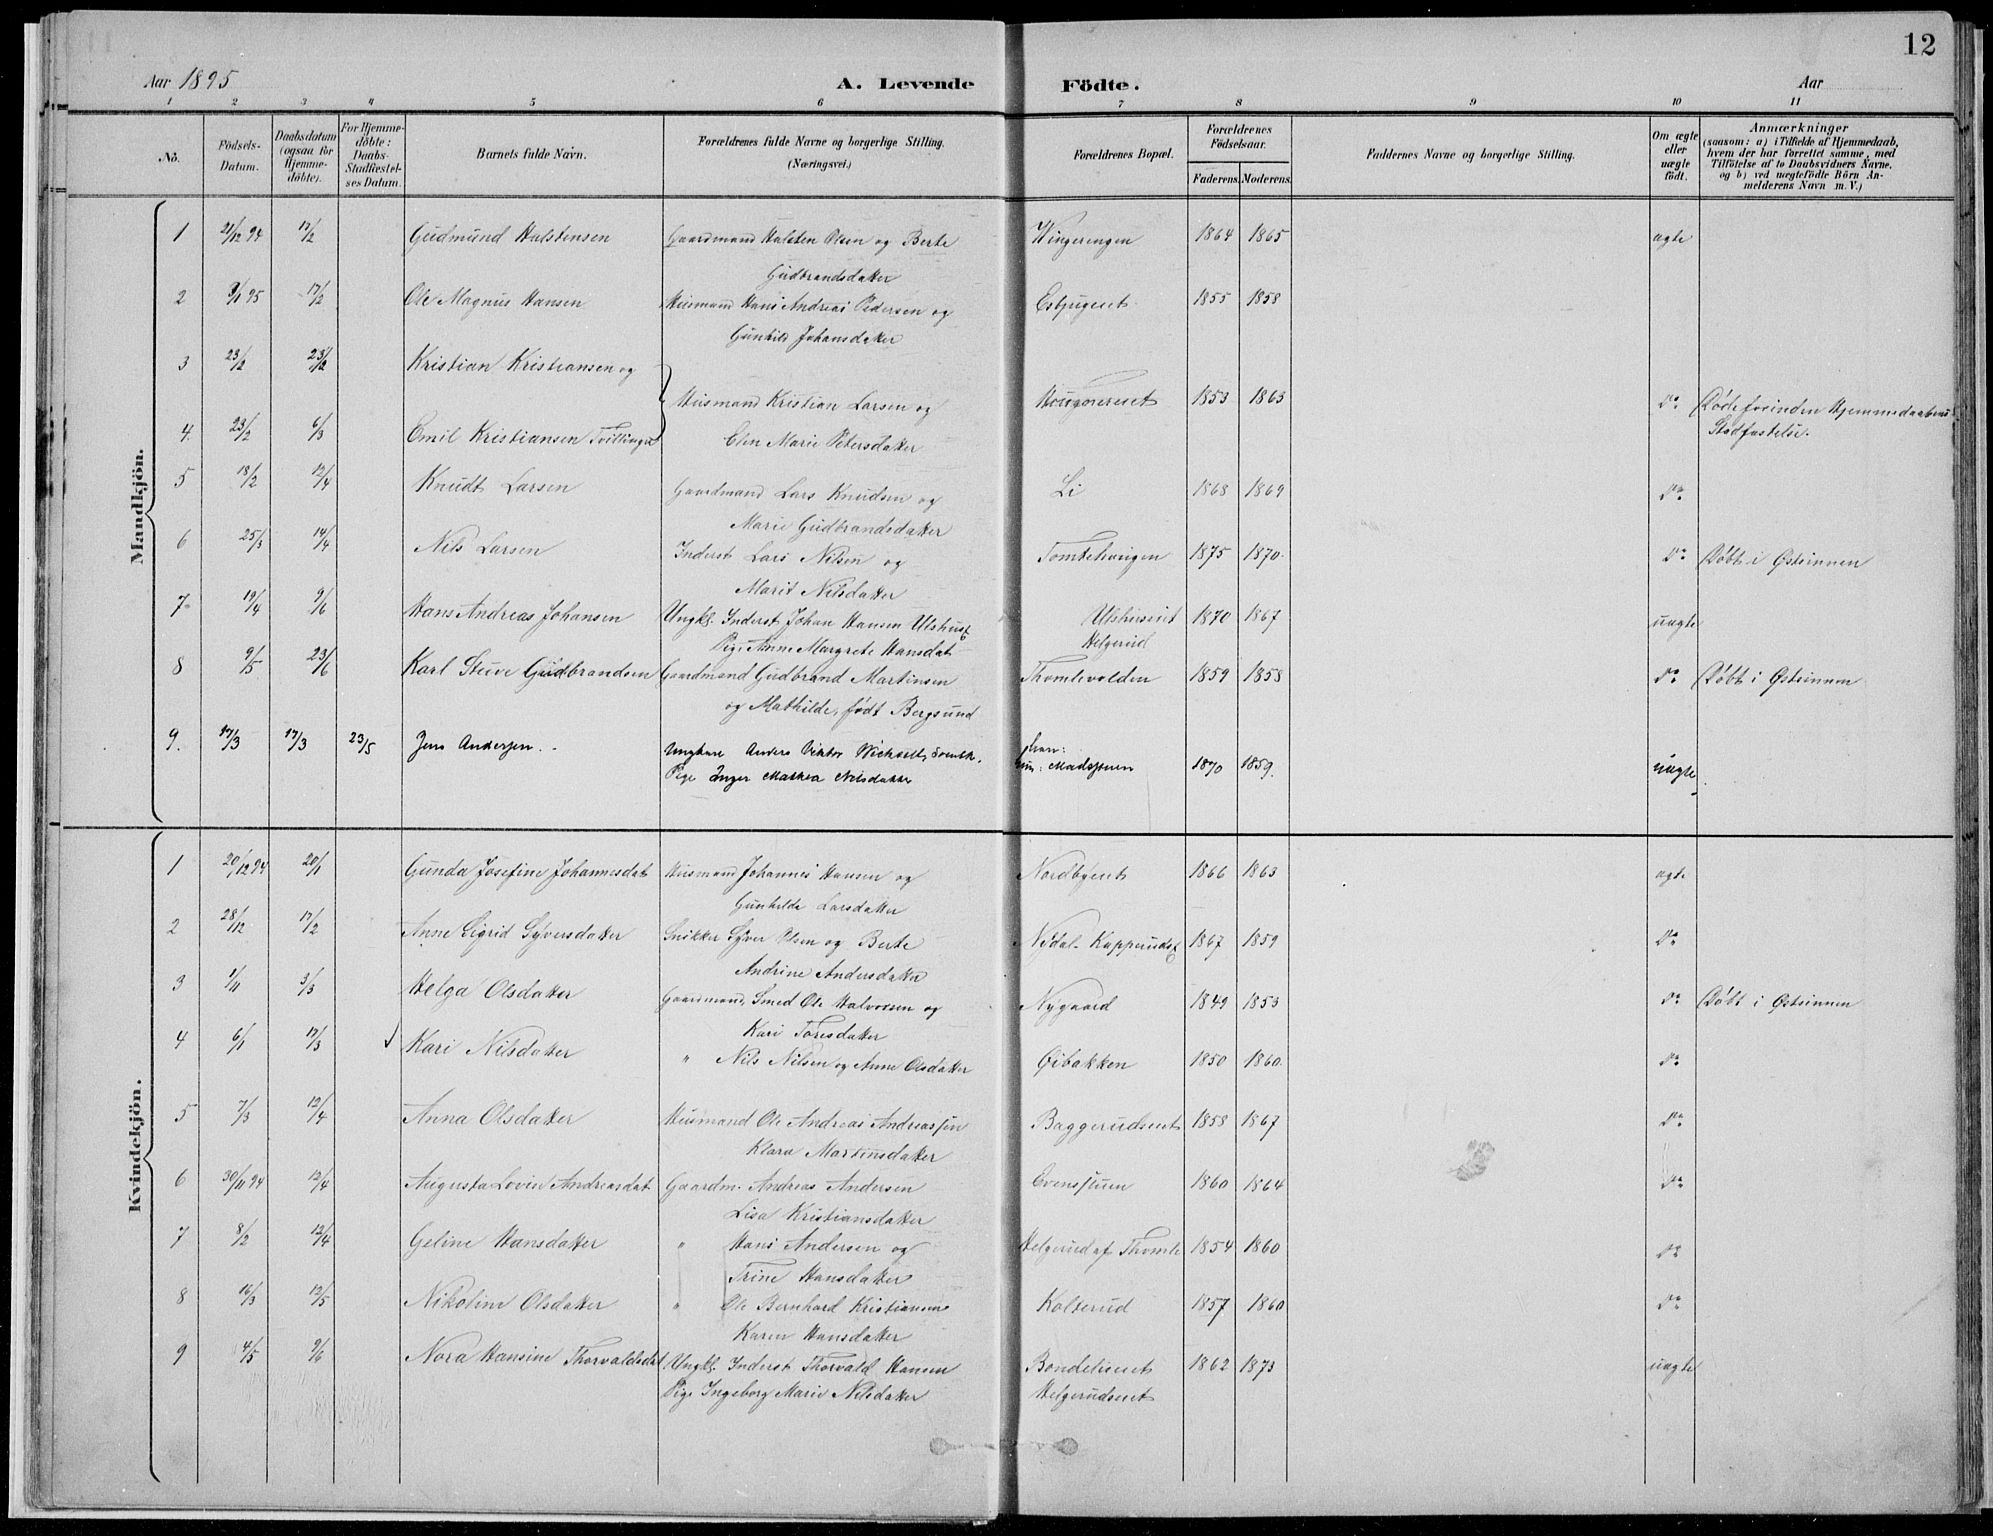 12
Aar 1895 A. Levende Födte. Aar
1 2 3 4 5 6 7 8 9 10 11
No. Födsels-Datum. Daabsdatum (ogsaa för Hjemme-döbte). For Hjemme-döbte: Daabs-Stadfæstel-ses Datum. Barnets fulde Navn. Forældrenes fulde Navne og borgerlige Stilling. (Næringsvei.) Forældrenes Bopæl. Forældrenes Födselsaar. Faderens. Moderens. Faddernes Navne og borgerlige Stilling. Om ægte eller uægte födt. Anmærkninger (saasom: a) i Tilfælde af Hjemmedaab, hvem der har forrettet samme, med Tilföielse af to Daabsvidners Navne, og b) ved uægtefödte Börn An-melderens Navn m. V.)
Mandkjön.
1 21/12 94 17/2 Gudmund Halstensen Gaardmand Halsten Olsen og Berte Wingerengen 1864 1865 ægte
Gudbrandsdatter
2 9/1 95 17/2 Ole Magnus Hansen Husmand Hans Andreas Pedersen og 1855 1858
Gunhild Johansdatter
3 23/2 23/2 Kristian Kristiansen og
Husmand Kristian Larsen og 1853 1863 do Døde forinden Hjemmedaabens
4. 23/2 6/3 Emil Kristiansen Tvillinger Elen Marie Petersdatter Stadfæstelse.
5 18/2 12/4 Knudt Larsen Gaardmand Lars Knudsen og Li 1868 1869 do
Marie Gudbrandsdatter
6 25/3 14/4 Nils Larsen Inderst Lars Nilsen og 1875 1870 do Døbt i Østsinnen
Marit Nilsdatter
7 19/4 9/6 Hans Andreas Johansen Ungkl. Inderst Johan Hansen Ulshus Ulshuseiet 1870 1867 uægte
Pige Anne Margrete Hansdat Helgerud
8 9/5 23/6 Karl Steve Gudbrandsen Gaardmand Gudbrand Martinsen Thomlevolden 1859 1858 do Døbt i Østsinnen
og Mathilde, født Bergsund
9. 17/3 17/3 23/5 Jens Andersen Ungkarl Anders Viktor han:
Pige Inger Mathea Nilsdatter hun: Madsjoren 1870 1859. uægte
Kvindekjön.
1 20/12 94 20/1 Gunda Josefine Johannesdat Husmand Johannes Hansen og Nordbyeiet 1866 1863 ægte
Gunhilde Larsdatter
2 28/12 17/2 Anne Sigrid Syversdatter Snikker Syver Olsen og Berte Nydal Kapperudst 1867 1859 do
Andrine Andersdatter
3 1/11 3/3 Helga Olsdatter Gaardmand, Smed Ole Halvorsen og Nygaard 1849 1853 do Døbt i Østsinnen
Kari Toresdatter
4 6/1 17/3 Kari Nilsdatter " Nils Nilsen og Anne Olsdatter Øibakken 1850 1860. do
5 7/3 12/4 Anna Olsdatter Husmand Ole Andreas Andreassen Baggerudseiet 1858 1867 do
Klara Martinsdatter
6 30/11 94 12/4 Augusta Lovise Andreasdat Gaardm. Andreas Andersen Evensjuen 1860 1864 do
Lisa Kristiansdatter
7 8/2 12/4 Geline Hansdatter " Hans Andersen og Helgerud af Thomle 1854 1860 do
Trine Hansdatter
8 16/3 12/5 Nikoline Olsdatter " Ole Bernhard Kristiansen Kolterud 1857 1860 do
Karen Hansdatter
9 4/5 9/6 Nora Hansine Thorvaldsdat Ungkl. Inderst Thorvald Hansen Bondelieeiet 1862 1873 uægte
Pige Ingeborg Marie Nilsdatter Helgerudseiet